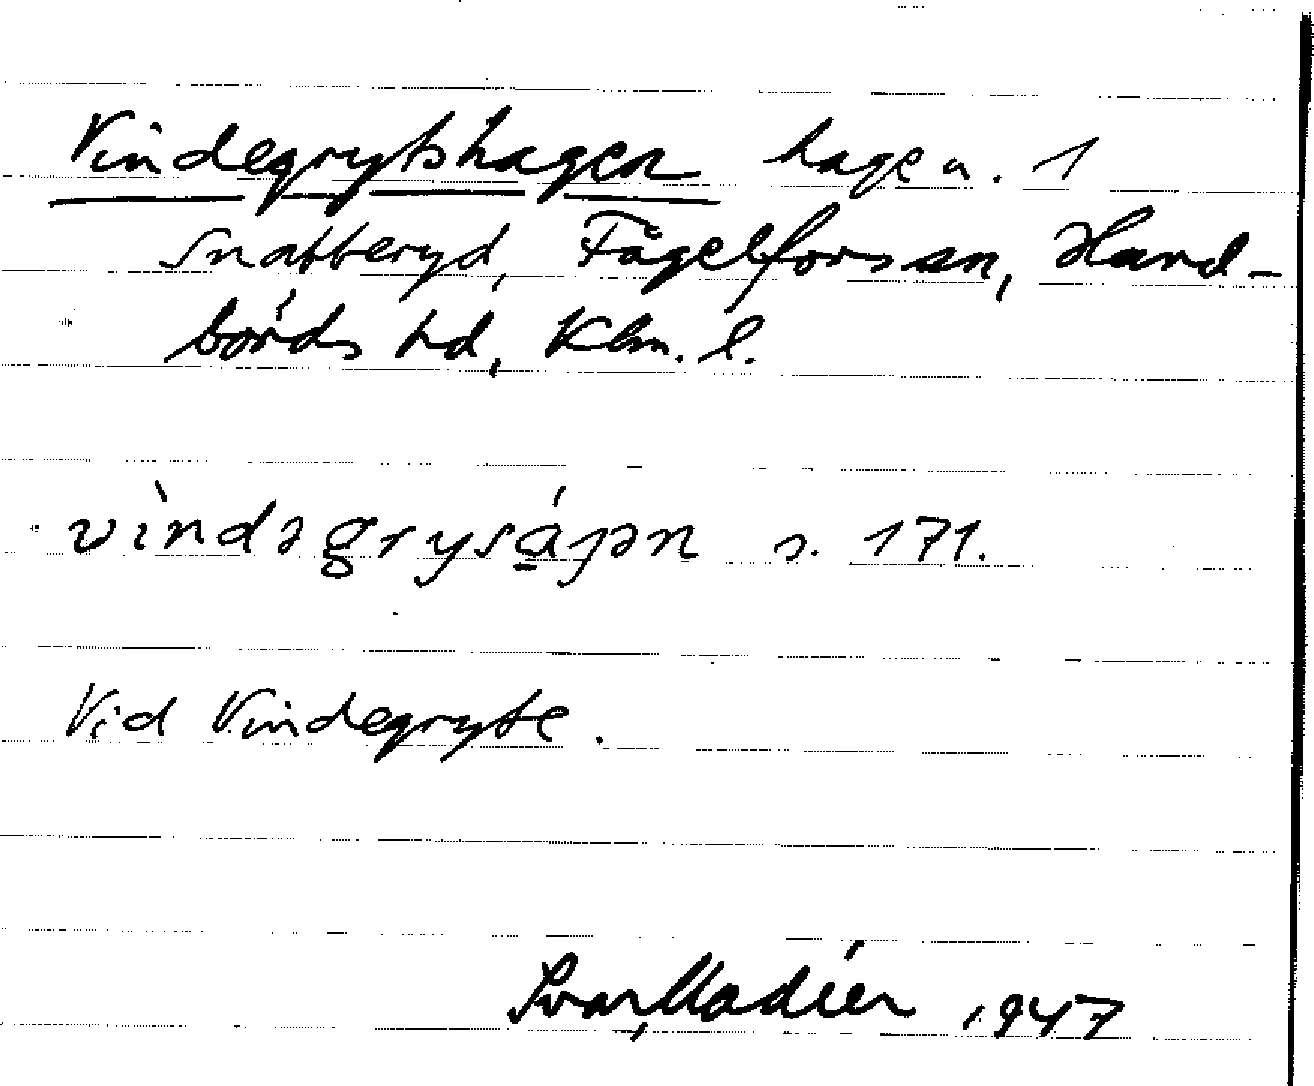 Vindegrytshagen hage n. 1
Snatteryd, Fågelfors sn, Hand-
börds hd, Klm. l.
vìndəgrysáɟən s. 171.
Vid Vindegryte.
Ivar Modéer 1947